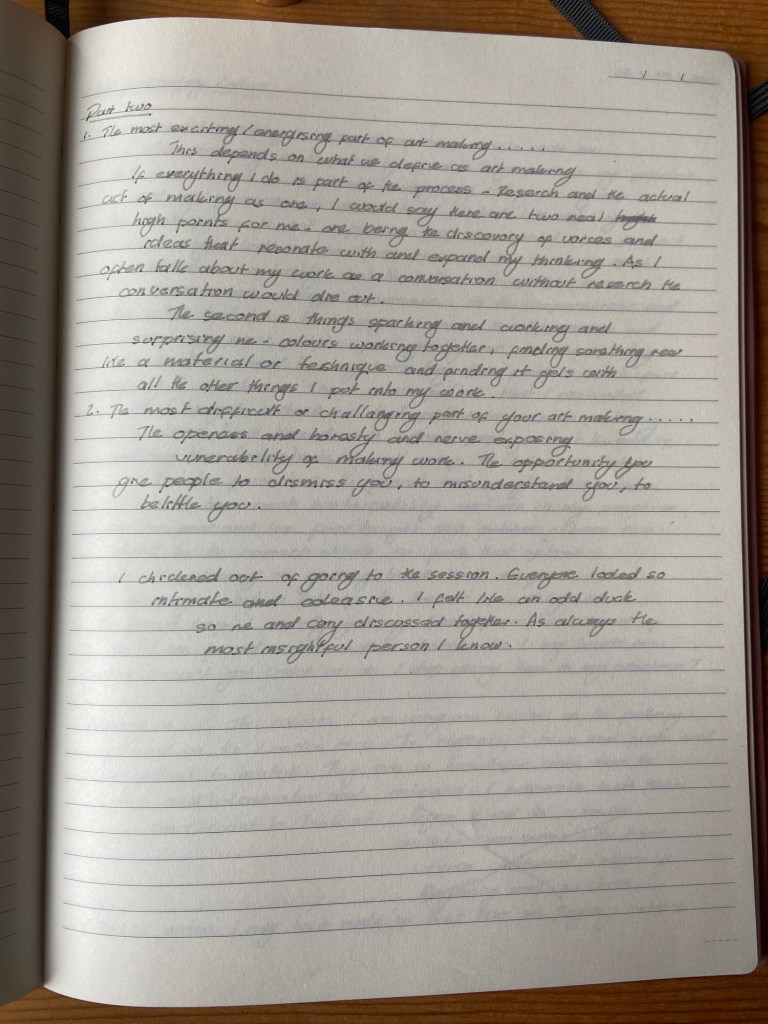 Part two
1. The most exciting / energising part of art making.....
This depends on what we define as art making
If everything I do is part of the process - Reserch and the actual
act of making as one, I would say there are two real
high points for me. one being the discovary of voices and
ideas that resonate with and expand my thinking. As I
often talk about my work as a conversation without reserch the
conversation would die out.
The second is things sparking and working and
surprising me - colours working together, finding somthing new
like a material or technique and finding it gels with
all the other things I put into my work.
2. The most difficult or challanging part of your art making.....
The openess and honasty and nerve exposing
vunerability of making work. The opportunity you
give people to dismiss you, to misunderstand you, to
belittle you.
I chickened out of going to the session. Everyone looked so
intimate and . I felt like an odd duck
so me and discossed together. As always the
most insightful person I know.